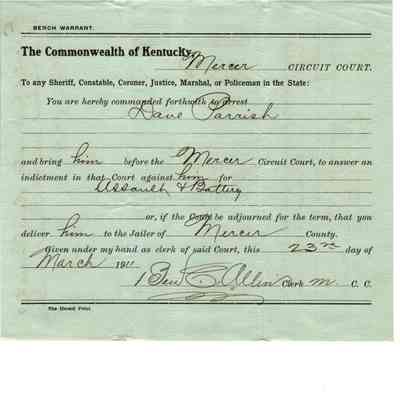 BENCH WARRANT.
The Commonwealth of Kentucky,
Mercer CIRCUIT COURT.
To any Sheriff, Constable, Coroner, Justice, Marshal, or Policeman in the State:
You are hereby commanded forthwith to arrest
Dave Parrish
and bring him before the Mercer Circuit Court, to answer an
indictment in that Court against him for
Assault & Battery
or, if the Court be adjourned for the term, that you
deliver him to the Jailer of Mercer County.
Given under my hand as clerk of said Court, this 23rd day of
March 1911
Allin Clerk M. C. C.
The Herald Print